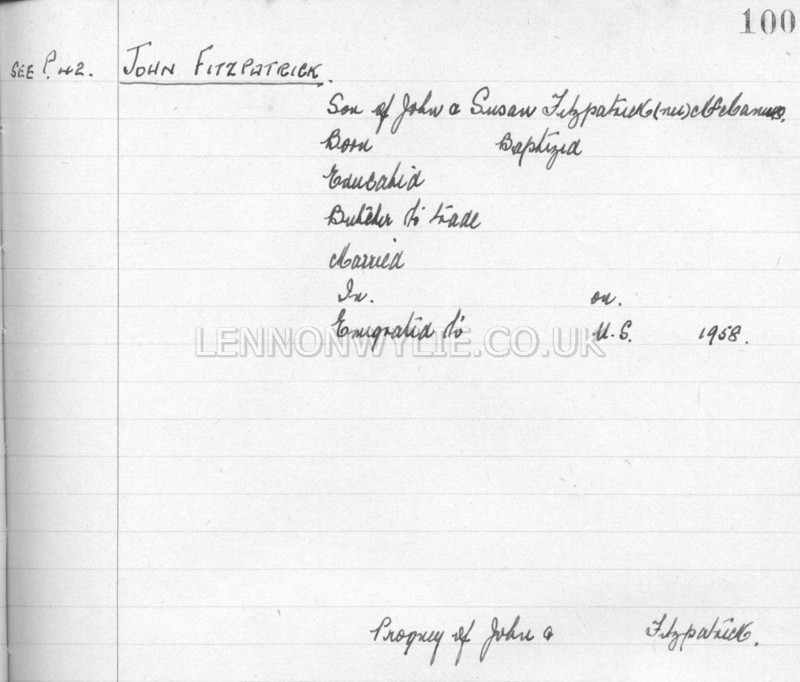 100
SEE P. 42. JOHN FITZPATRICK.
Son of John & Susan Fitzpatrick (nee) McManus.
Born Baptized
Educated
Butcher to trade
Married
In. on.
Emigrated to U.S. 1958.
LENNONWYLIE.CO.UK
Progney of John & Fitzpatrick.